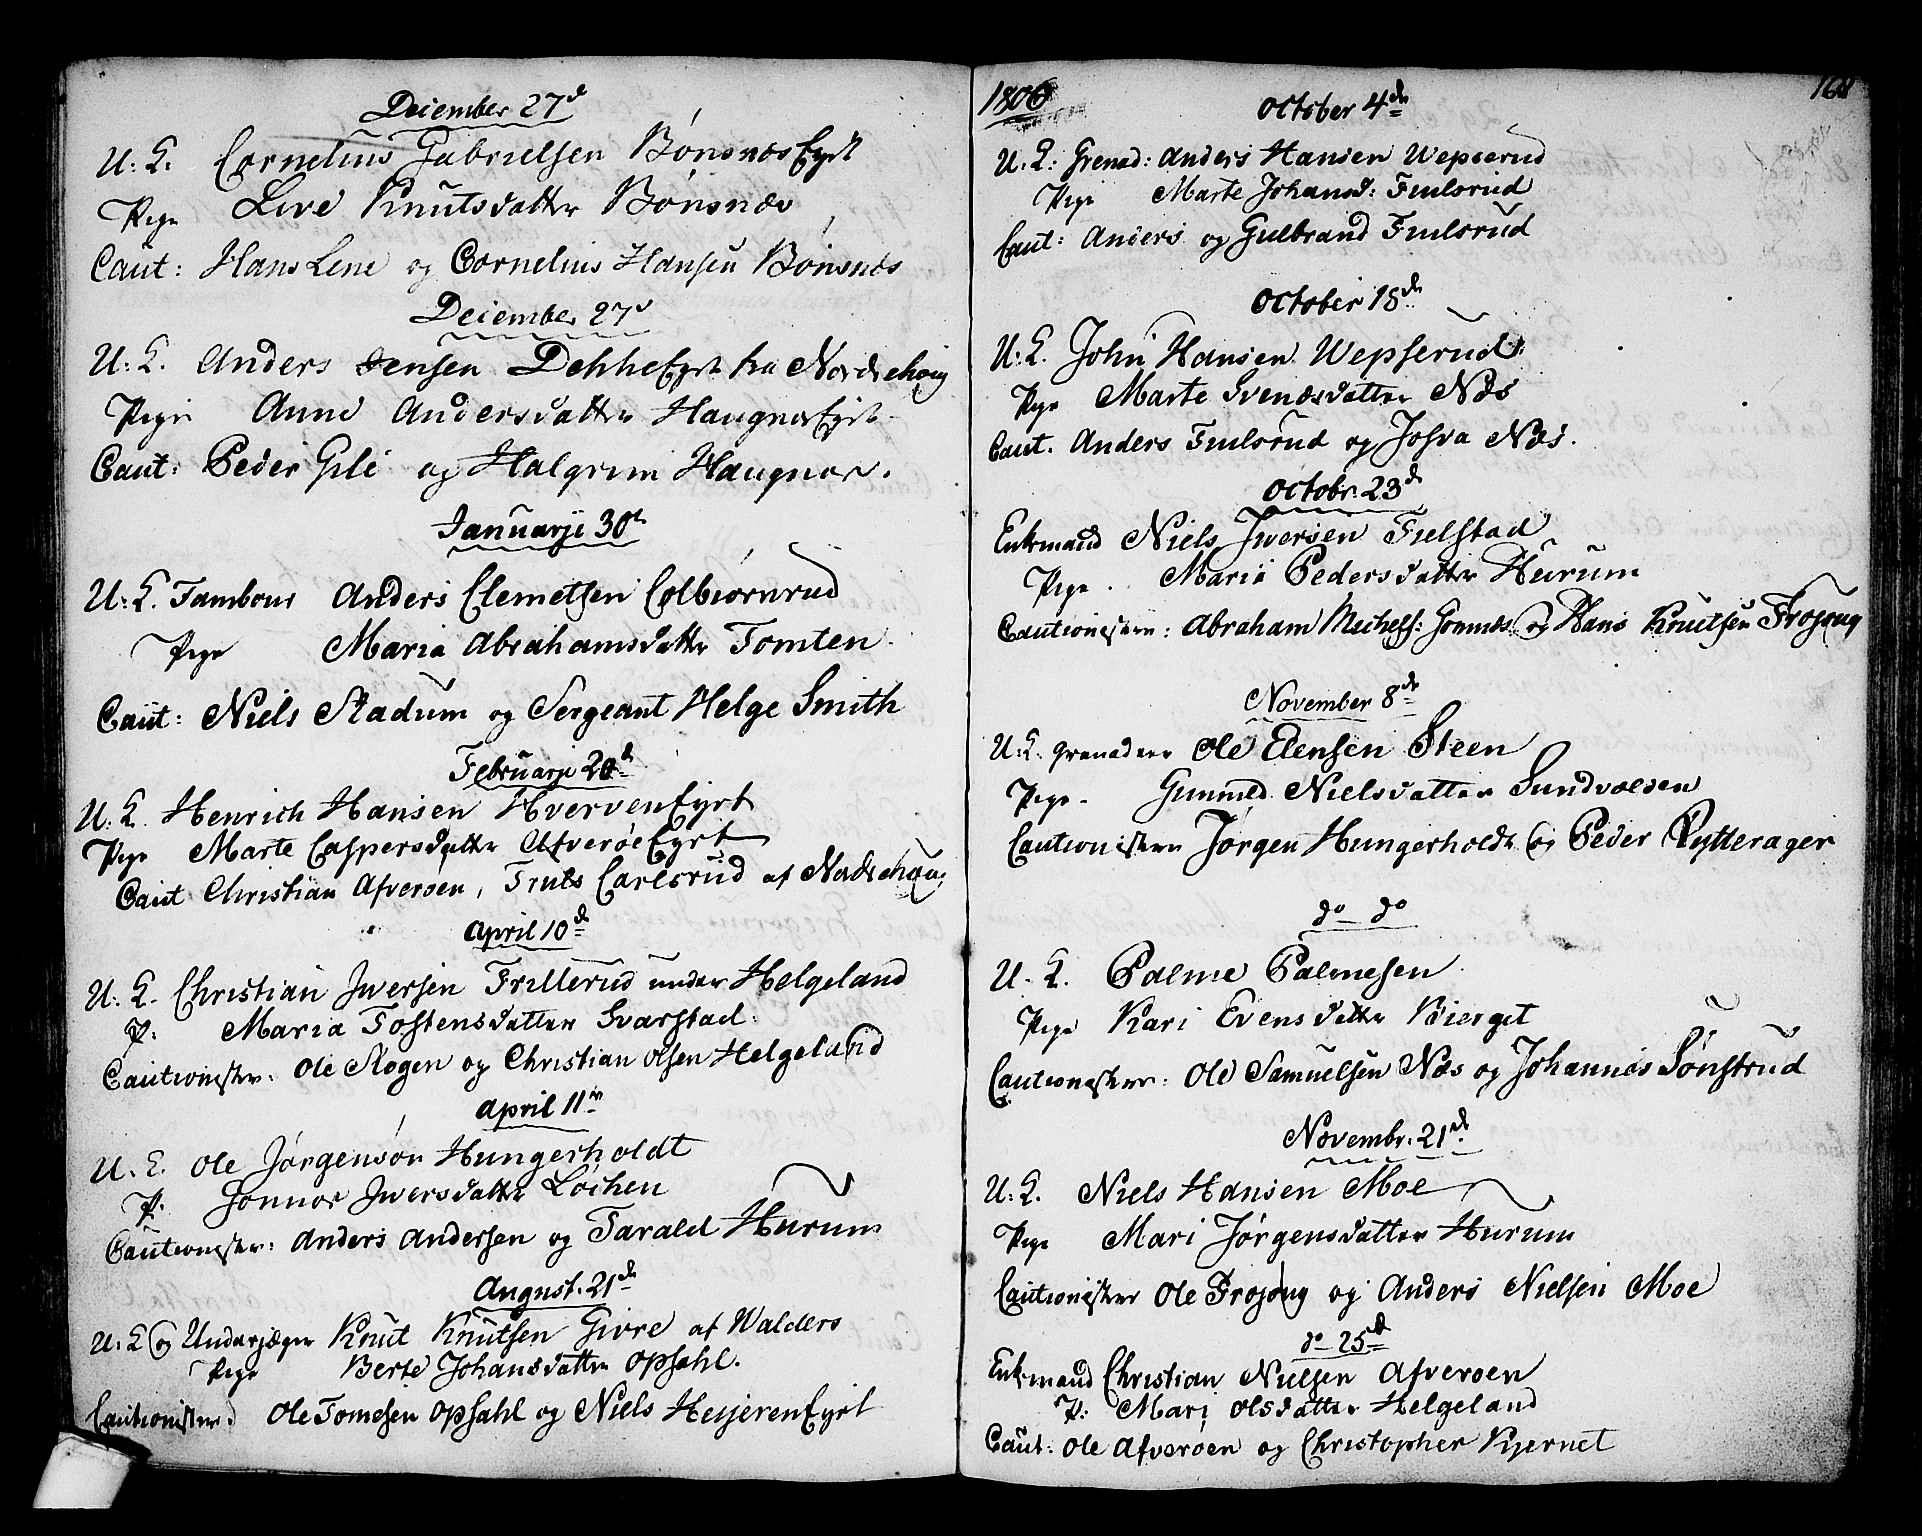 Deiember 27d
U: K. Cornelius Gabrielsen Bønsnæs Eyet
Pige Live Knutsdatter Bønsnæs
Caut: Hans Lene og Cornelius Hansen Bønsnæs
Deiember 27d
U: K. Anders Jensen Dehhe Eyet fra Nordrehoug
Pige Anne Andersdatter Haugnor Eyet
Caut: Peder Gile og Halgrim Haugnor.
Januarji 30te
U: K. Tambour Anders Clemetsen Colbiørnrud
Pige Maria Abrahamsdatter Tomten.
Caut: Niels Stadum og Sergeant Helge Smith
Februarji 20d
U: K. Henrich Hansen Hverven Eyet
Pige Marte Caspersdatter Afverøe Eyet
Caut Christian Afverøen, Truls Carlsrud af Nordrehoug
April 10d
U: K. Christian Iversen Trillerud under Helgeland
P: Maria Tostensdatter Svarstad.
Cautionister: Ole Skogen og Christian Olsen Helgeland
April 11te
U. K. Ole Jørgensøn Hungerholdt
P. Gonnor Iversdatter Løchen
Cautionister: Anders Andersen og Tarald Hurum
August. 21d
U: K og Underjæger Knut Knutsen Givre af Walders
Pige Berte Johansdatter Opsahl.
Cautionister: Ole Tomesen Opsahl og Niels Hesjeren Eyet
1806
168
October 4de
U. K: Grenad: Anders Hansen Wepserud
Pige Marte Johansd: Finlsrud
Caut: Anders og Gulbrand Finlsrud
October 18de
U: K. John Hansen Wepserud:
Pige Marte Svensdatter Næs
Caut. Anders Finlsrud og Josva Næs.
Octobr. 23d
Enkemand Niels Iversen Fielstad
Pige. Maria Pedersdatter Hurum
Cautionister: Abraham Michels: Gommæs og Hans Knutsen Frøjoug
November 8de
U: K. grenadeer Ole Elensen Steen
Pige. Gunnild Nielsdatter Sundvolden
Cautionister Jørgen Hungerholdt og Peder Rytterager
do do
U. K. Palme Palmesen.
Pige Kari Evensdatter Bierget
Cautionister: Ole Samuelsen Næs og Johannes Sønstrud
Novembr. 21d
U: K. Niels Hansen Moe
Pige Mari Jørgensdatter Hurum
Cautionister Ole Frøjoug og Anders Nielsen Moe
do 25d
Enkemand Christian Nielsen Afverøen
P: Mari Olsdatter Helgeland
Caut: Ole Afverøen og Christopher Kjernet